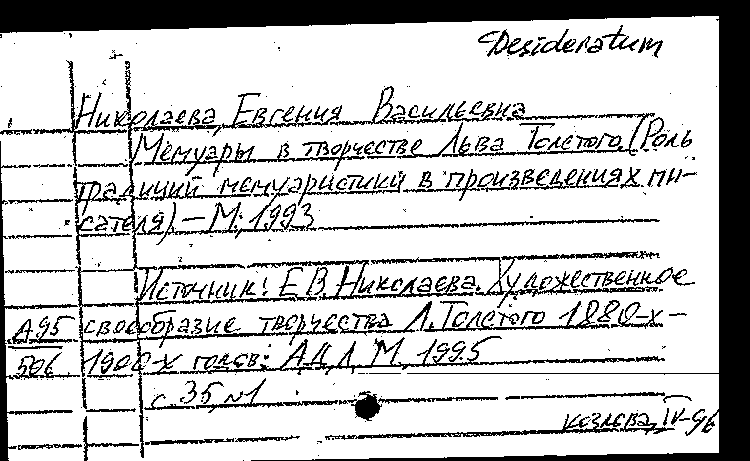 Desideratum
Николаева, Евгения Васильевна
Мемуары в творчестве Льва Толстого. (Роль
традиций мемуаристики в произведениях пи-
сателя). – М., 1993
Источник: Е.В. Николаева. Художественное
А95 своеобразие творчества Л. Толстого 1880-х –
506 1900-х годов: АД, Л, М, 1995
с. 35, №1
Козлова, IV-96